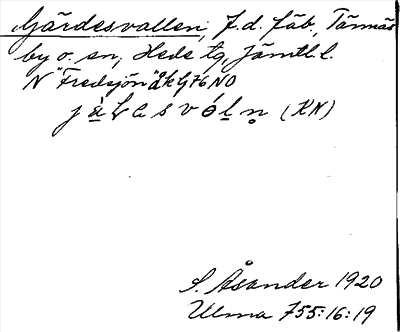 Gärdesvallen, f.d. fäb., Tännäs
by o. sn, Hede tg, Jämtl. l.
N "Fredsjön" åk G76 NO
(KN)
S. Åsander 1920
Ulma 755:16:19